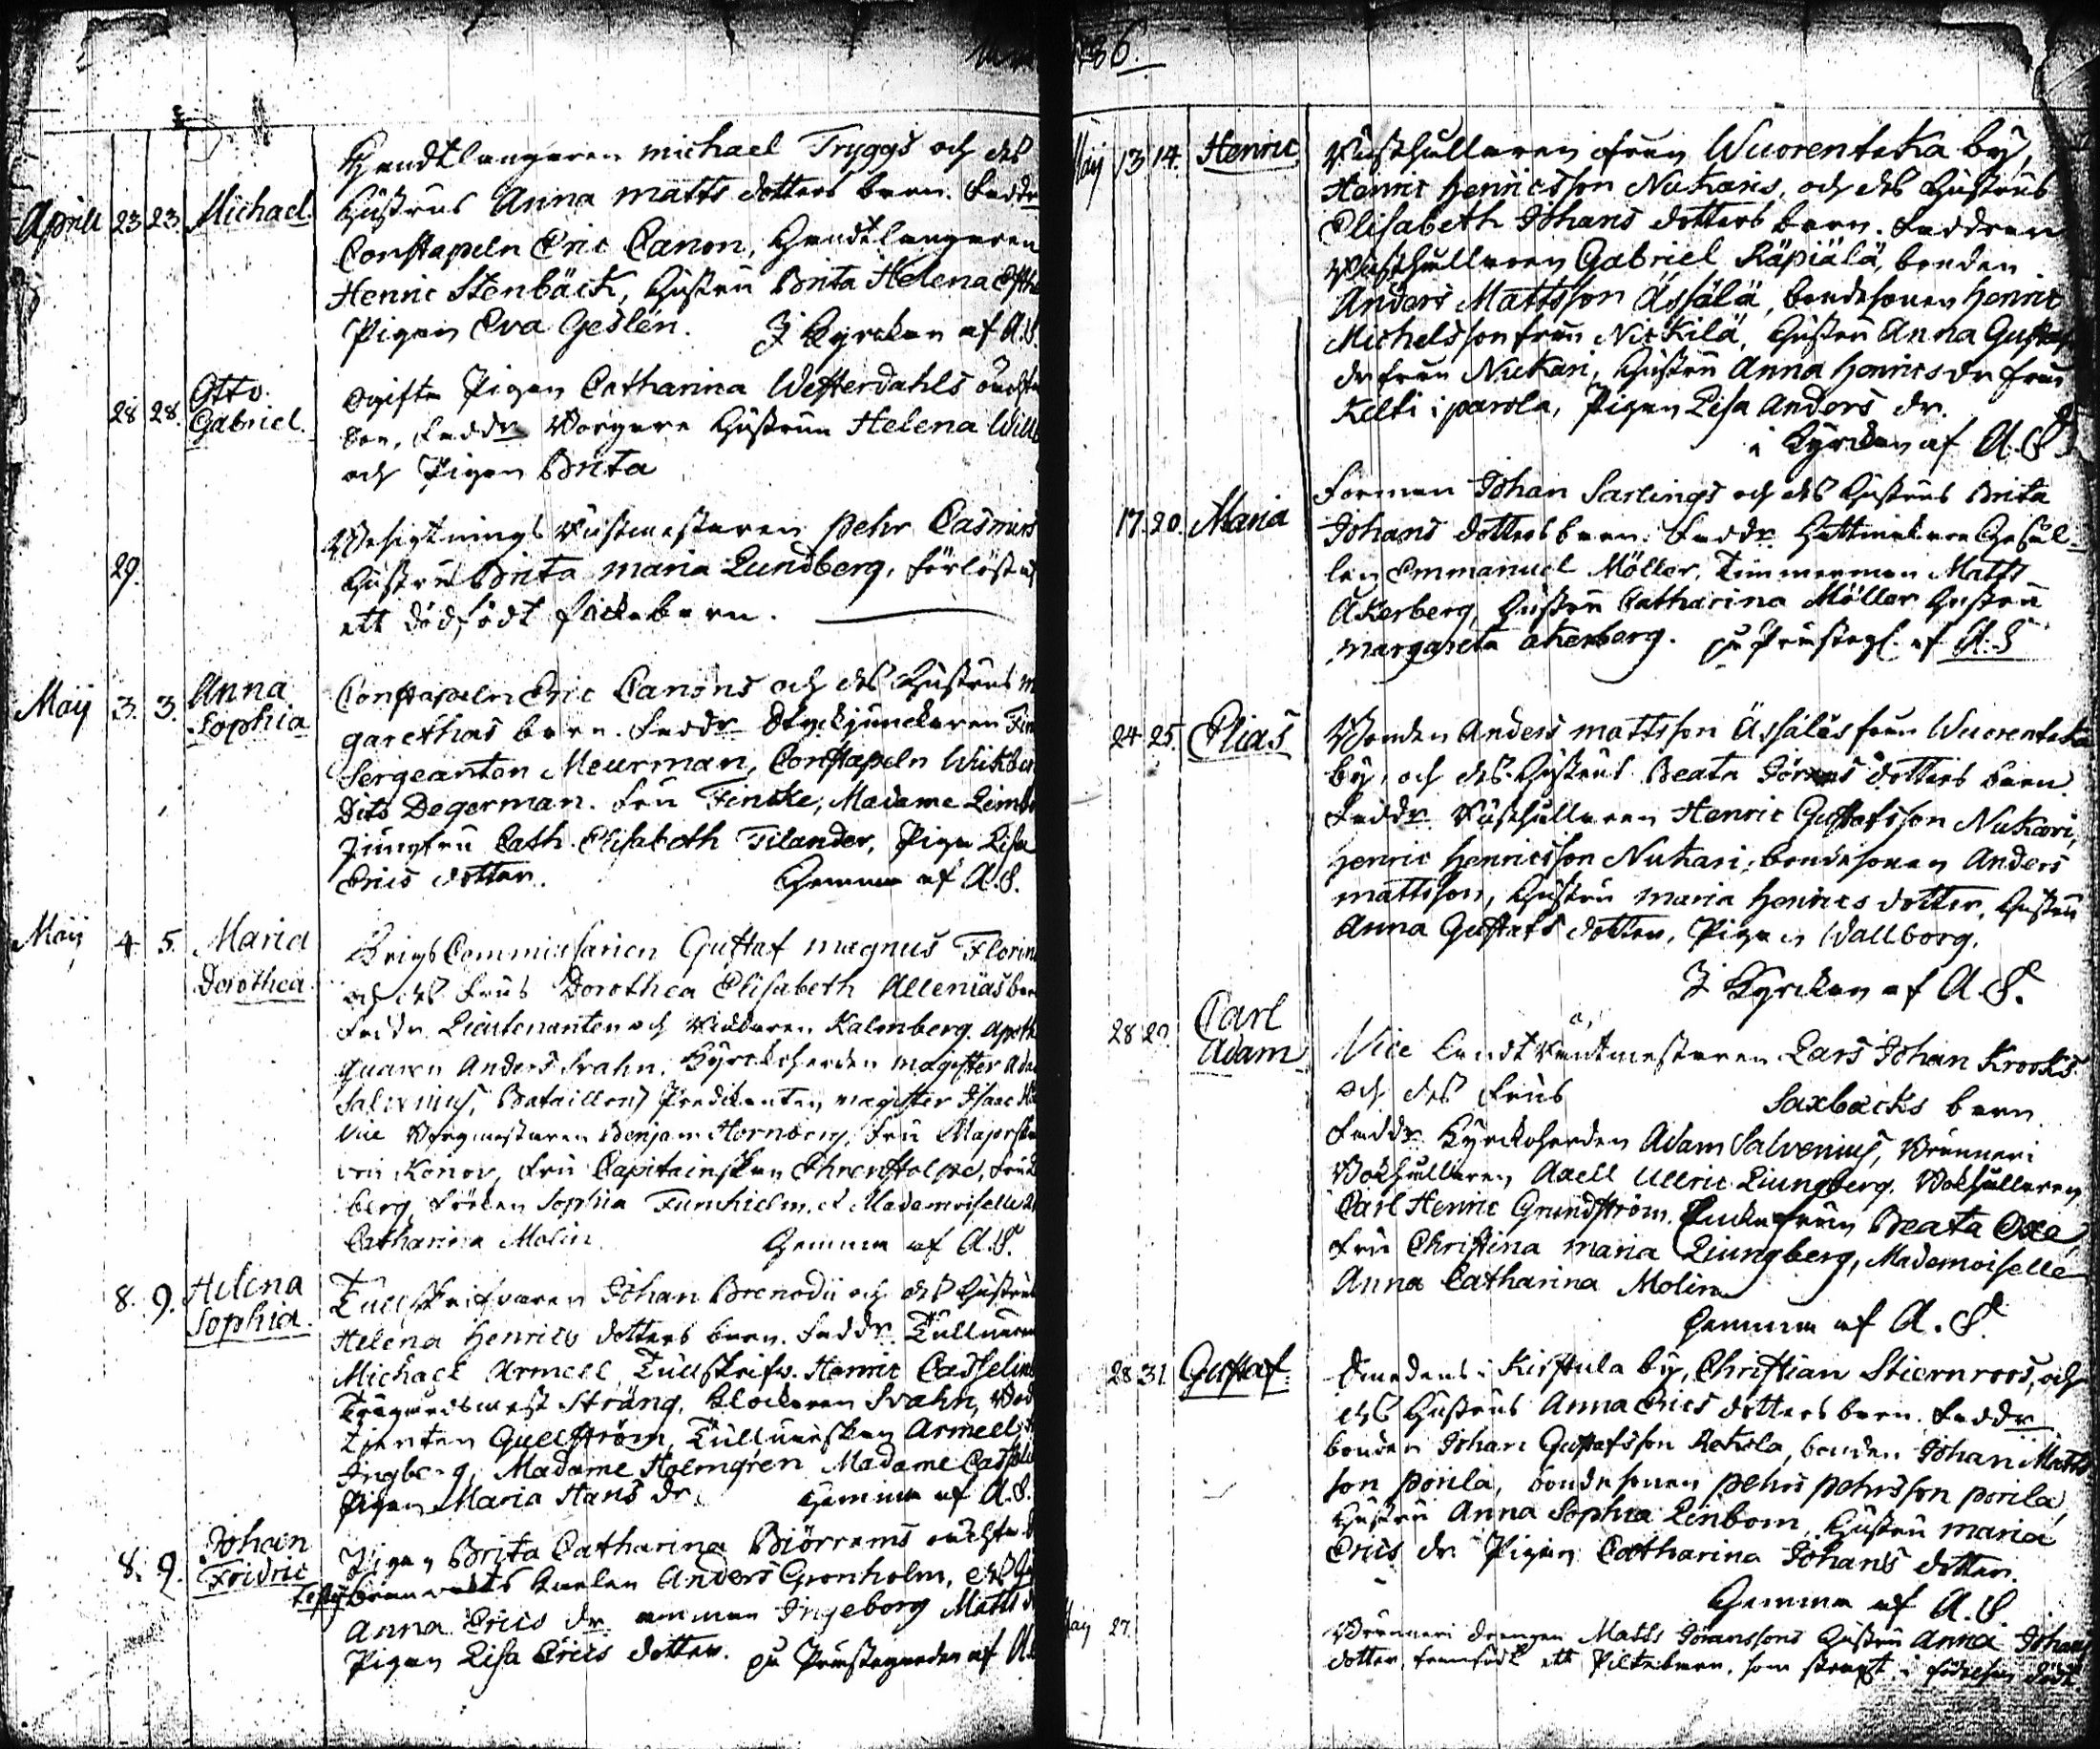 1786.
Handtlangaren Michael Tryggs och des
Aprill 23 23. Michael. Hustrus Anna Matts dotters barn. Faddr
Constapeln Eric Canon, Handtlangaren
Henric Stenbäck, Hustru Brita Helena
Pigan Eva Geslén. I Kyrckan af A.S.
28 28. Otto Gabriel. Ogifta Pigan Catharina Westerdahls oächta
barn, Faddr Borgare Hustrun Helena
och Pigan Brita
29. Besigtnings Rustmästaren Pehr Casmirs
Hustru Brita Maria Lundberg, förlöstes
ett dödfödt flickebarn.
Maij 3. 3. Anna Sophia Constapeln Eric Canons och des Hustrus
garethas barn. Faddr Styckjunckaren
Sergeanten Meurman, Constapeln
Dito Degerman. Fru Fincke, Madame
Jungfru Cath. Elisabeth Tilander, Piga Lisa
Erics dotter. Hemma af A.S.
Maij 4 5. Maria Dorothea. Krigs Commissarien Gustaf Magnus
och des Frus Dorothea Elisabeth Allenias
Faddr Lieutenanten och Riddaren Kalmberg.
Anders Svahn, Kyrckoherden Magister
Salvenius, Bataillons Predikanten magister Isaac
Vice Borgmästaren Benjam. Hornborg, Fru
von Konow, Fru Capitainskan Ehrenstolpe,
berg, Fröken Sophia Furuhielm, et Mademoiselle
Catharina Molin. Hemma af A.S.
8. 9. Helena Sophia. Tullskrifvaren Johan Brenodii och des Hustrus
Helena Henrics dotters barn. Faddr.
Michael Armeel, Tullskrifv. Henric
Sträng, Klockaren Svahn,
Quellström, Armeel,
Ingberg, Madame Holmgren Madame
Pigan Maria Hans dr. Hemma af A.S.
8. 9. Johan Fridric Pigan Brita Catharina Biörrams oächta
Anders Gronholm, des
Anna Erics dr. Ingeborg Matts
Pigan Lisa Erics dotter. på Prästegården af
Maij 13 14. Henric Rusthållaren ifrån Wuorentaka by,
Henric Henricsson Nukaris, och des Hustrus
Elisabeth Johans dotters barn. Faddrar
Rusthållaren Gabriel Räpiälä, bonden
Anders Mattsson Ässälä, bondesonen Henric
Michelsson från Nickilä, Hustru Anna Gustafs
dr från Nukari, Hustru Anna Henrics dr från
Kelti i parola, Pigan Lisa Anders dr.
i Kyrckan af A.S.
17. 20. Maria Forman Johan Sarlings och des Hustrus Brita
Johans dotters barn. Faddr. Hattmakare Gesäl-
len Emmanuel Möller, Timmerman Matts
Åkerberg, Hustru Catharina Möller Hustru
Margareta Åkerberg. på Prästeg. af A.S
24 25. Elias Bonden Anders Mattsson Ässäläs från Wuorentaka
by, och des Hustrus Beata Jörans dotters barn.
Faddr Rusthållaren Henric Gustafsson Nukari,
Henric Henricsson Nukari, bondesonen Anders
Mattsson, Hustru Maria Henrics dotter, Hustru
Anna Gustafs dotter, Pigan Wallborg.
I Kyrckan af A.S.
28 29. Carl Adam Vice Landt Räntmästaren Lars Johan Krooks
och des Frus Saxbäcks barn
Faddr Kyrckoherden Adam Salvenius, Bränneri
Bokhållaren Axell Ullric Liungberg, Bokhållaren
Carl Henric Grundström, Enckefrun Beata Oxe
Fru Christina Maria Liungberg, Mademoiselle
Anna Catharina Molin
Hemma af A.S.
28 31 Gustaf. Smedens i Kirstula by, Christian Stiernroos, och
des Hustrus Anna Erics dotters barn. Faddr
bonden Johan Gustafsson bonden Johan Matts
son porila, bondesonen Pehr Pehrsson porila,
Hustru Anna Sophia Linbom, Hustru Maria
Erics dr Pigan Catharina Johans dotter.
Hemma af A.S.
Maij 27. Bränneri drängen Matts Göranssons Hustru Anna Johans
dotter, framfödt ett Piltebarn, som strax i födelsen dödt